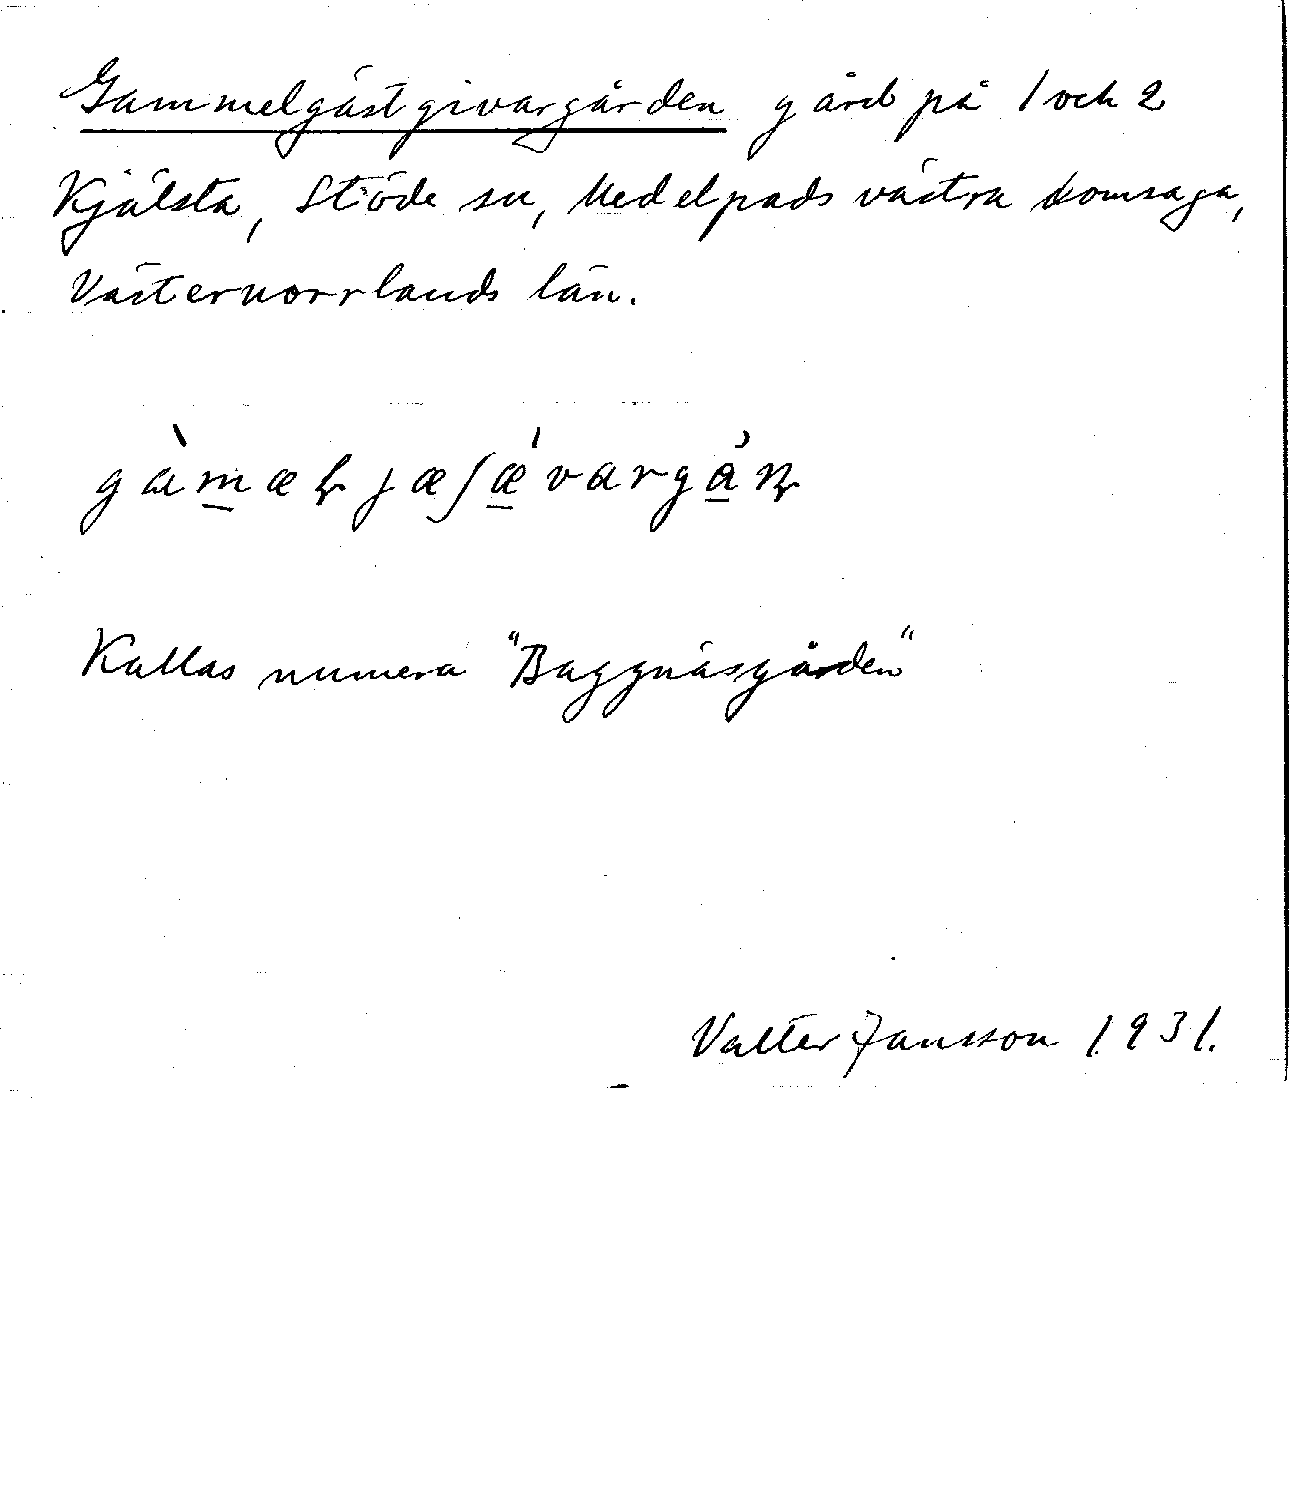 Gammelgästgivargården gård på 1 och 2
Kjälsta, Stöde sn, Medelpads västra domsaga,
Västernorrlands län.
Kallas numera "Baggnäsgården"
Valter Jansson 1931.